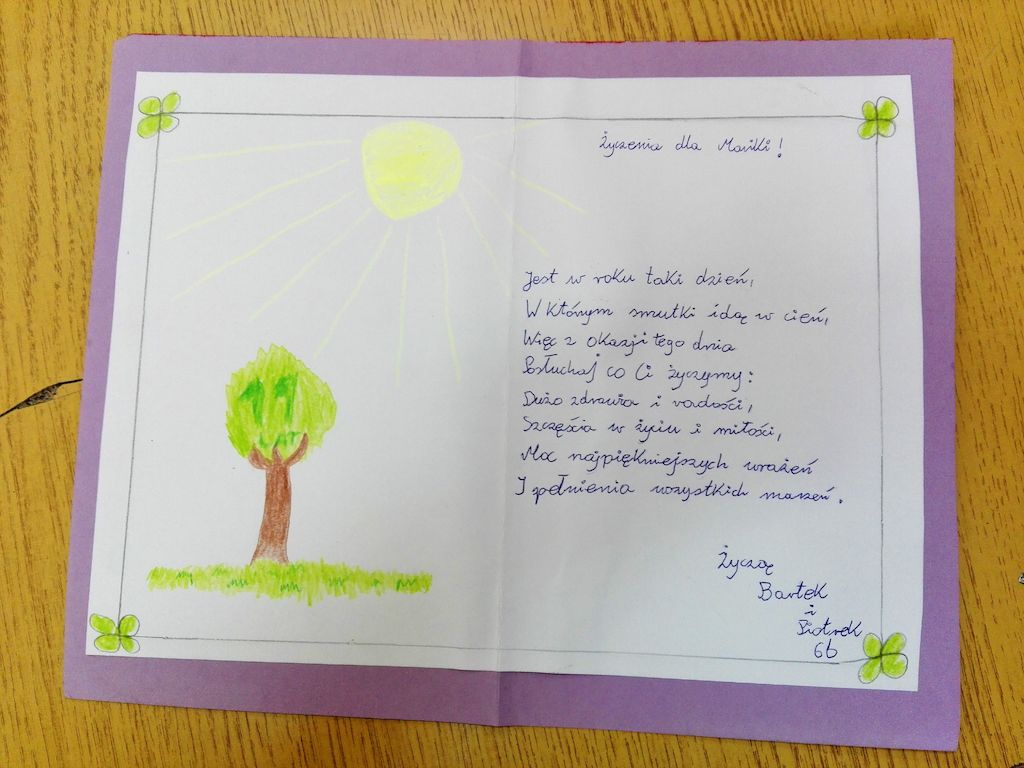 Życzenia dla Mariki!
Jest w roku taki dzień,
W którym smutki idą w cień,
Więc z okazji tego dnia
Posłuchaj co Ci życzymy:
Dużo zdrowia i radości,
Szczęścia w życiu i miłości,
Moc najpiękniejszych wrażeń
I spełnienia wszystkich marzeń.
Życzą
Bartek
i
Piotrek
6b